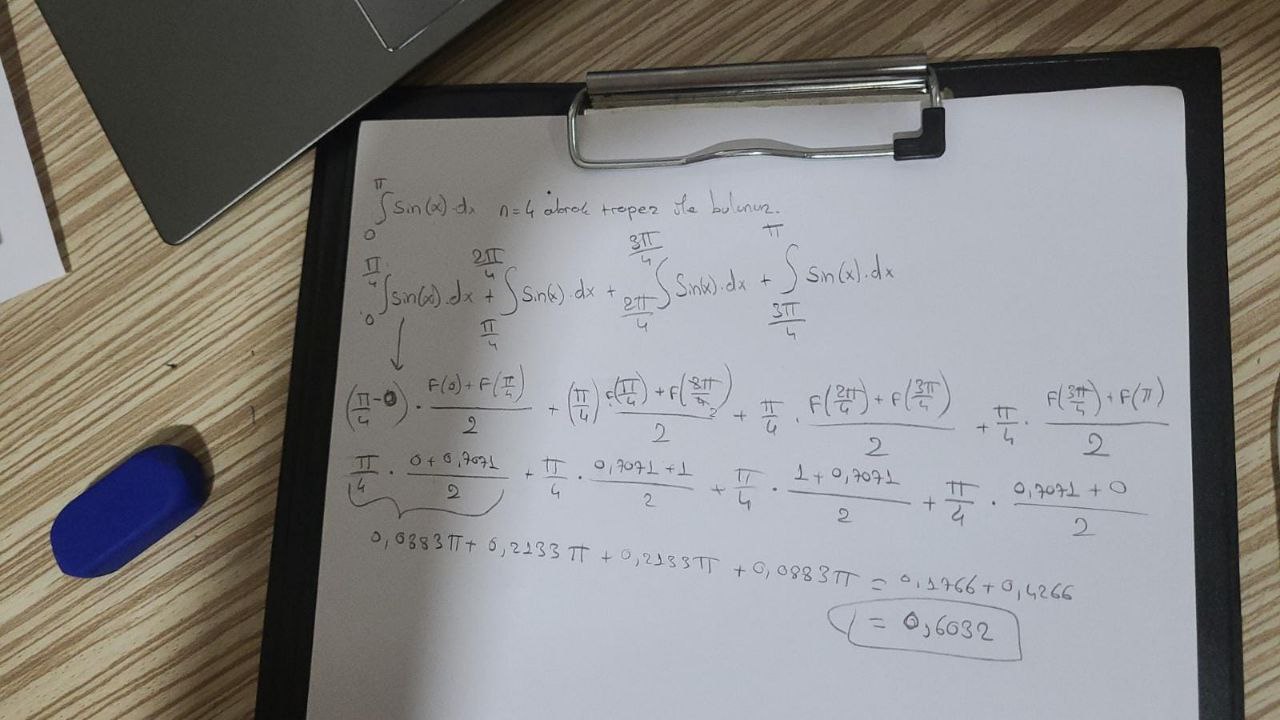 ∫₀^π sin(x)·dx n=4 alarak trapez ile bulunuz.
∫₀^(π/4) sin(x)·dx + ∫_(π/4)^(2π/4) sin(x)·dx + ∫_(2π/4)^(3π/4) sin(x)·dx + ∫_(3π/4)^π sin(x)·dx
(π/4 - 0) · (F(0) + F(π/4))/2 + (π/4) (F(π/4) + F(2π/4))/2 + π/4 · (F(2π/4) + F(3π/4))/2 + π/4 · (F(3π/4) + F(π))/2
π/4 · (0 + 0,7071)/2 + π/4 · (0,7071 + 1)/2 + π/4 · (1 + 0,7071)/2 + π/4 · (0,7071 + 0)/2
0,0883π + 0,2133π + 0,2133π + 0,0883π = 0,1766 + 0,4266
= 0,6032